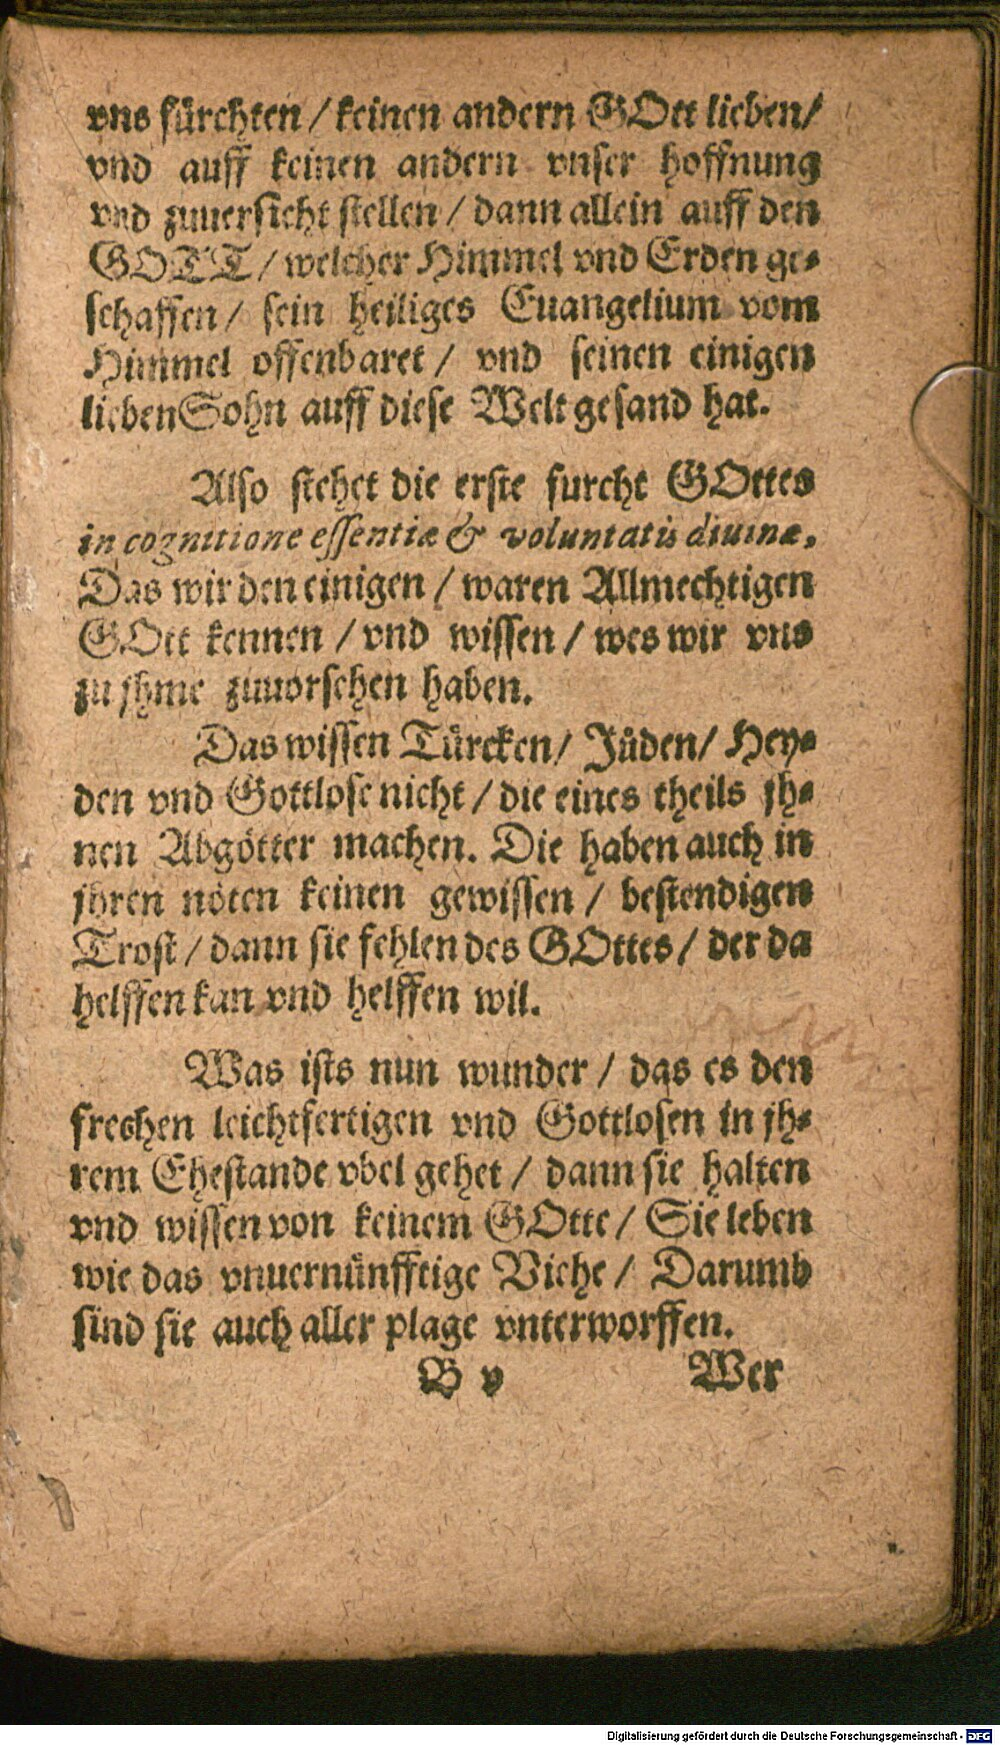 vns fürchten / keinen andern GOtt lieben /
vnd auff keinen andern vnser hoffnung
vnd zuuersicht stellen / dann allein auff den
GOTT / welcher Himmel vnd Erden ge-
schaffen / sein heiliges Euangelium vom
Himmel offenbaret / vnd seinen einigen
lieben Sohn auff diese Welt gesand hat.
Also stehet die erste furcht GOttes
in cognitione essentiæ & voluntatis diuinæ.
Das wir den einigen / waren Allmechtigen
GOtt kennen / vnd wissen / wes wir vns
zu jhme zuuorsehen haben.
Das wissen Türcken / Jüden / Hey-
den vnd Gottlose nicht / die eines theils jh-
nen Abgötter machen. Die haben auch in
jhren nöten keinen gewissen / bestendigen
Trost / dann sie fehlen des GOttes / der da
helffen kan vnd helffen wil.
Was ists nun wunder / das es den
frechen leichtfertigen vnd Gottlosen in jh-
rem Ehestande vbel gehet / dann sie halten
vnd wissen von keinem GOtte / Sie leben
wie das vnuernünfftige Viehe / Darumb
sind sie auch aller plage vnterworffen.
B v Wer
Digitalisierung gefördert durch die Deutsche Forschungsgemeinschaft - DFG